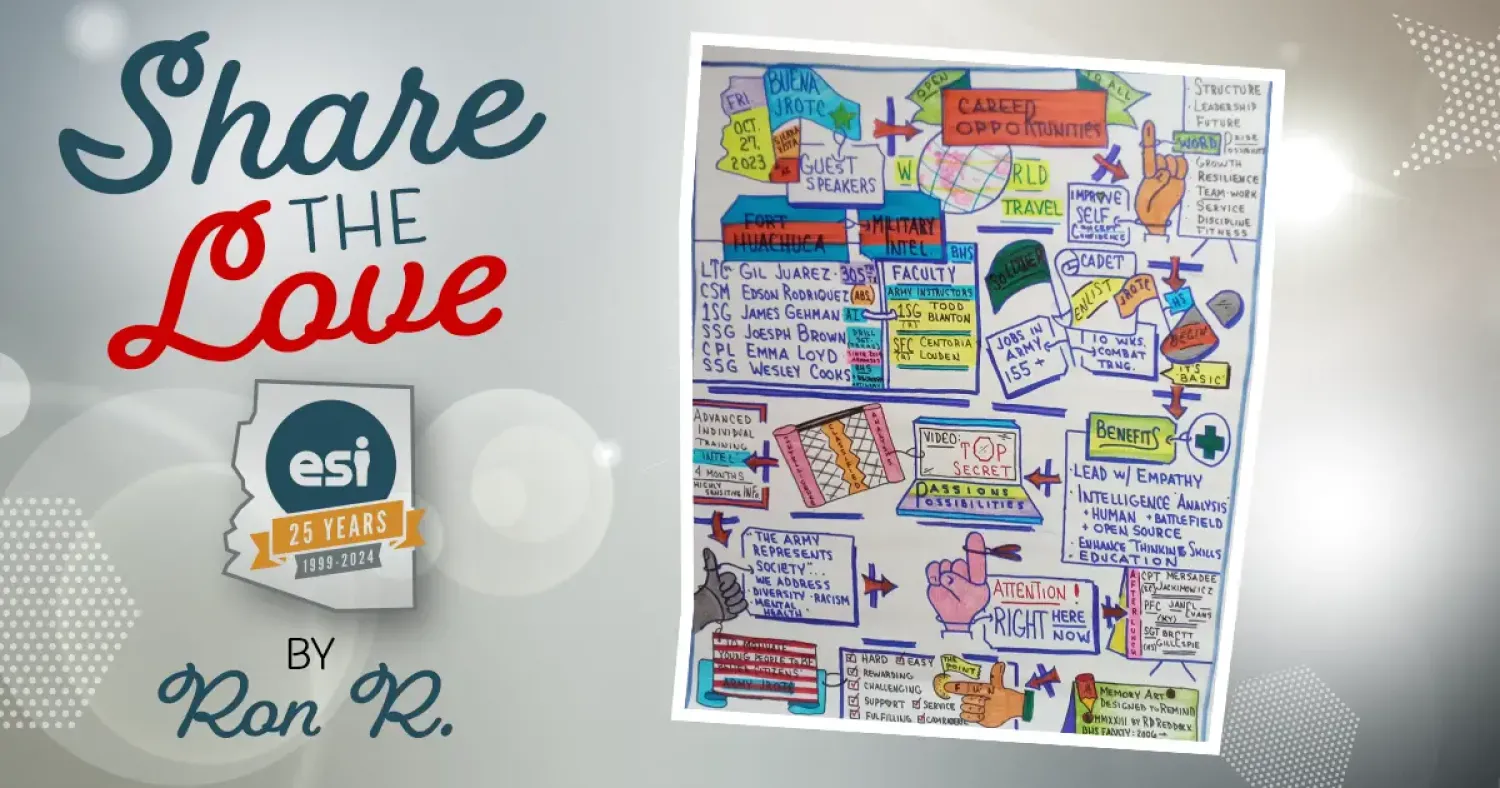 Share
THE
Love
esi
25 YEARS
1999-2024
BY
Ron R.
FRI.
OCT.
27,
2023
BUENA
JROTC
SIERRA
VISTA
GUEST
SPEAKERS
OPEN
TO ALL
CAREER
OPPORTUNITIES
W RLD
TRAVEL
IMPROVE
SELF
CONCEPT
CONFIDENCE
WORD
STRUCTURE
LEADERSHIP
FUTURE
PRIDE
GROWTH
RESILIENCE
TEAM-WORK
SERVICE
DISCIPLINE
FITNESS
FORT
HUACHUCA
MILITARY
INTEL.
LTC GIL JUAREZ - 305TH
CSM EDSON RODRIQUEZ
1SG JAMES GEHMAN
SSG JOESPH BROWN
CPL EMMA LOYD
SSG WESLEY COOKS
BHS
FACULTY
ARMY INSTRUCTORS
1SG TODD
BLANTON
SFC CENTORIA
LOUDEN
SOLDIER
CADET
ENLIST
JROTC
JOBS IN
ARMY
155+
10 WKS.
COMBAT
TRNG.
HS
BEGIN
IT'S
"BASIC"
ADVANCED
INDIVIDUAL
TRAINING
"INTEL"
4 MONTHS
HIGHLY
SENSITIVE INFO.
CLASSIFIED
ANALYSIS
VIDEO:
TOP
SECRET
PASSIONS
POSSIBILITIES
BENEFITS
• LEAD W/ EMPATHY
• INTELLIGENCE ANALYSIS
+ HUMAN + BATTLEFIELD
+ OPEN SOURCE
• ENHANCE THINKING SKILLS
• EDUCATION
"THE ARMY
REPRESENTS
SOCIETY"...
WE ADDRESS
• DIVERSITY • RACISM
• MENTAL
HEALTH
ATTENTION!
RIGHT HERE
NOW
AFTER LUNCH
CPT MERSADEE
JACKIMOWICZ
PFC JANEL
EVANS
(KY)
SGT BRETT
GILLESPIE
"TO MOTIVATE
YOUNG PEOPLE TO BE
BETTER CITIZENS"
ARMY JROTC
HARD EASY
REWARDING
CHALLENGING
SUPPORT SERVICE
FULFILLING
THE
POINT
FIND
A MEMORY ART
DESIGNED TO REMIND
MMXXIII BY RD REDDICK
BHS FACULTY: 2006 →